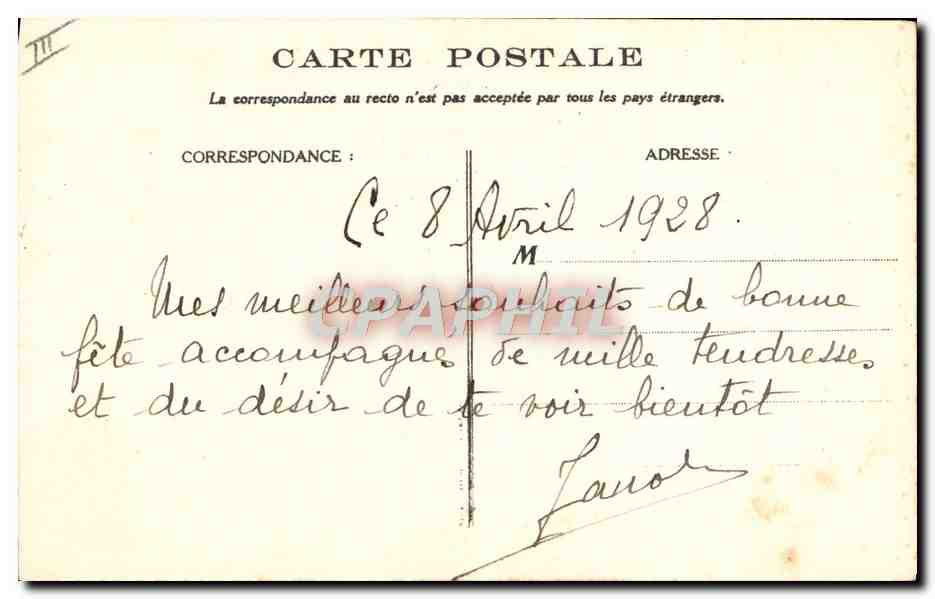 III
CARTE POSTALE
La correspondance au recto n'est pas acceptée par tous les pays étrangers.
CORRESPONDANCE :
ADRESSE
Ce 8 Avril 1928.
M
Mes meilleurs souhaits de bonne
CPAPHIL
fête accompagnés de mille tendresses
et du désir de te voir bientôt